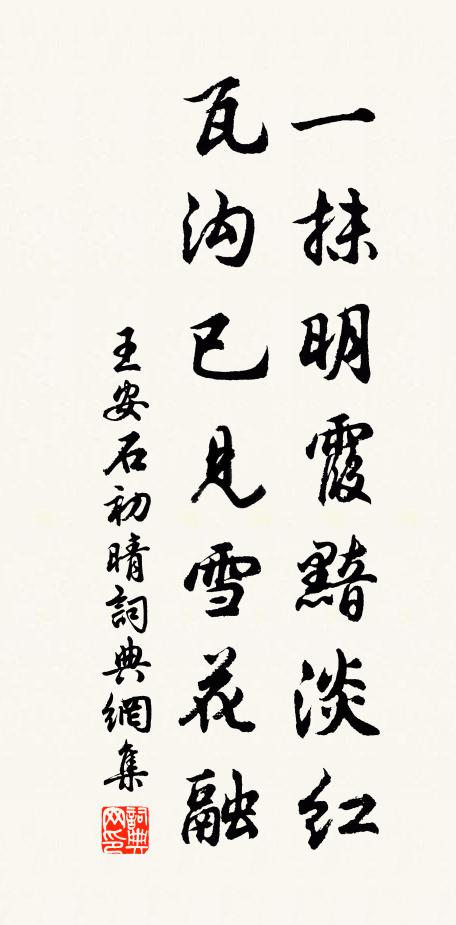 一抹明霞黯淡红
瓦沟已见雪花融
王安石初晴詞典網集
詞典网印